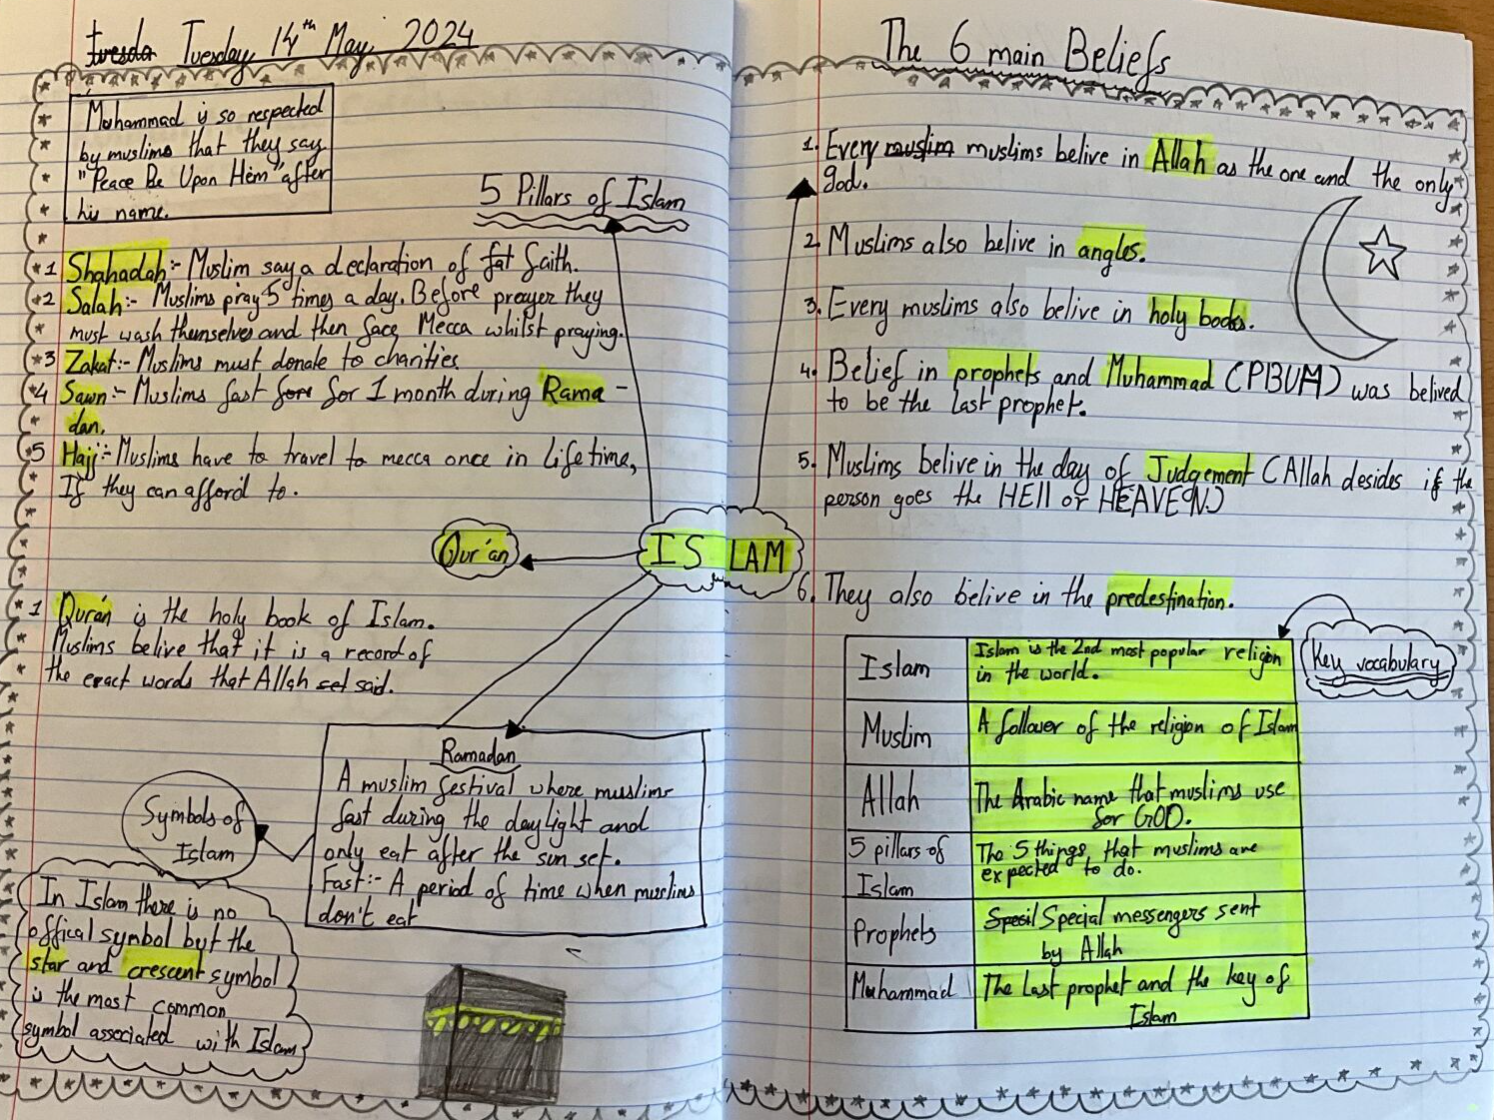 tuesda Tuesday 14th May, 2024
Muhammad is so respected
by muslims that they say
"Peace Be Upon Him" after
his name.
5 Pillars of Islam
1 Shahadah:- Muslim say a declaration of fat faith.
2 Salah:- Muslims pray 5 times a day. Before preyer they
must wash themselves and then face Mecca whilst praying.
3 Zakat:- Muslims must donate to charities
4 Sawn:- Muslims fast fore for 1 month during Rama-
dan.
5 Hajj:- Muslims have to travel to mecca once in life time,
If they can afford to.
Qur'an
IS LAM
1 Qur'an is the holy book of Islam.
Muslims belive that it is a record of
the exact words that Allah set said.
Ramadan
A muslim festival where muslims
fast during the day light and
only eat after the sun set.
Fast:- A period of time when muslims
don't eat
Symbols of
Islam
In Islam there is no
offical symbol byt the
star and crescent symbol
is the most common
symbol associated with Islam
The 6 main Beliefs
1. Every muslim muslims belive in Allah as the one and the only
god.
2. Muslims also belive in angles.
3. Every muslims also belive in holy books.
4. Belief in prophets and Muhammad (PBUH) was belived
to be the last prophet.
5. Muslims belive in the day of Judgement (Allah desides if the
person goes the HEll or HEAVEN.)
6. They also belive in the predestination.
Key vocabulary
Islam
Islam is the 2nd most popular religion
in the world.
Muslim
A follower of the religion of Islam
Allah
The Arabic name that muslims use
for GOD.
5 pillars of
Islam
The 5 things, that muslims are
expected to do.
Prophets
Specil Special messengers sent
by Allah
Muhammad
The last prophet and the key of
Islam